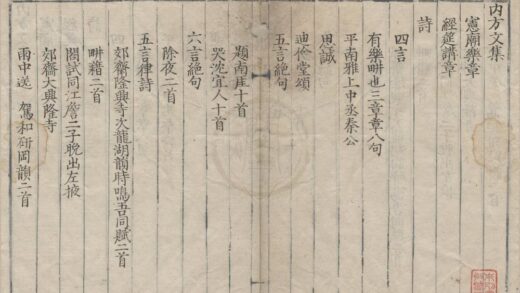 内方文集
憲廟樂章
經筵講章
詩
四言
有樂畊也三章章八句
平南雅上中丞秦公
思誠
迪倫堂頌
五言絶句
題南崖十首
哭沈宜人十首
六言絶句
除夜二首
五言律詩
郊齋隆興寺次龍湖韻時鳴吾同賦二首
畊藉二首
閣試同江詹二子晚出左掖
郊齋大興隆寺
雨中送 駕和研岡韻二首